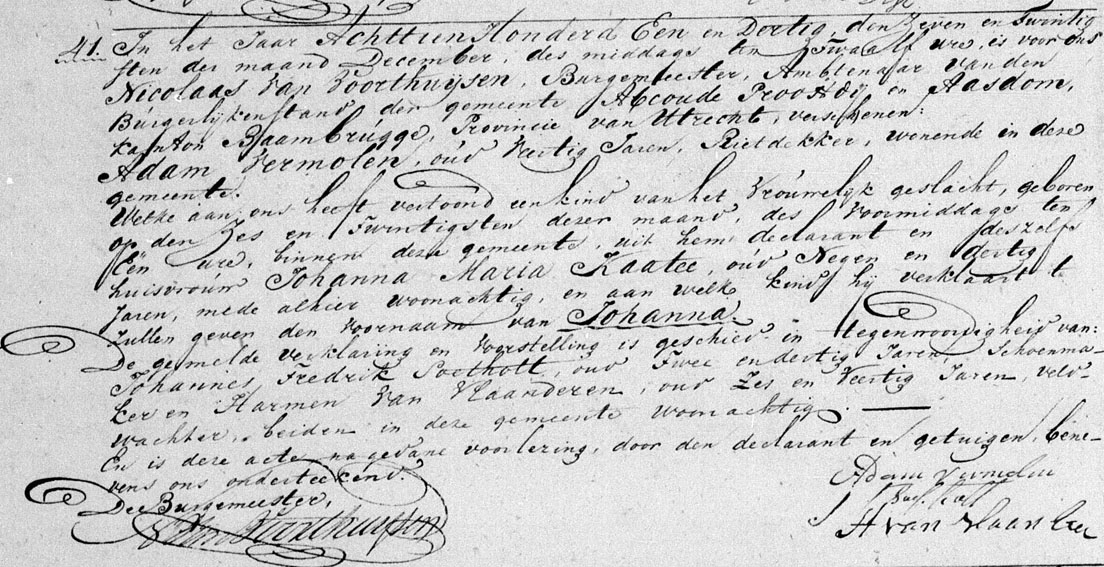 41. In het Jaar Achttien Honderd Een en Dertig den Zeven en Twintig
sten der maand December, des middags ten Twaalf ure, is voor ons
Nicolaas Van Voorthuijsen, Burgemeester, Ambtenaar van den
Burgerlijkenstand der gemeente Abcoude Proostdij en Aasdom,
kanton Baambrugge, Provincie van Utrecht, verschenen:
Adam Vermolen, oud Veertig Jaren, Rietdekker, wonende in deze
gemeente.
Welke aan ons heeft vertoond een kind van het Vrouwelijk geslacht, geboren
op den Zes en Twintigsten dezer maand, des Voormiddags ten
Één ure, binnen deze gemeente, uit hem declarant en deszelfs
huisvrouw Johanna Maria Kaatee, oud Negen en dertig
Jaren, mede alhier woonachtig, en aan welk kind hij verklaart te
zullen geven den Voornaam van Johanna.
De gemelde verklaring en Voorstelling is geschied in tegenwoordigheid van:
Johannes Fredrik Soetholt, oud Twee en dertig Jaren, Schoenma-
ker en Harmen Van Vlaanderen, oud Zes en Veertig Jaren veld-
wachter, beiden in deze gemeente woonachtig.
En is deze acte na gedane voorlezing, door den declarant en getuigen, bene-
vens ons onderteekend.
Adam Vermolen
Dee Burgemeester,
H van Vlaanderen